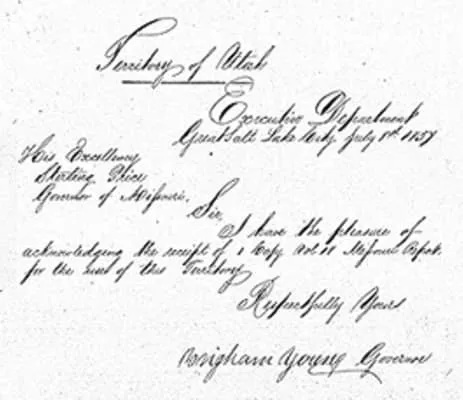 Territory of Utah
Executive Department
Great Salt Lake City July 1st 1857
His Excellency
Sterling Price
Governor of Missouri,
Sir
I have the pleasure of
acknowledging the receipt of 1 Copy Vol Missouri Report
for the use of this Territory
Respectfully Yours
Brigham Young Governor